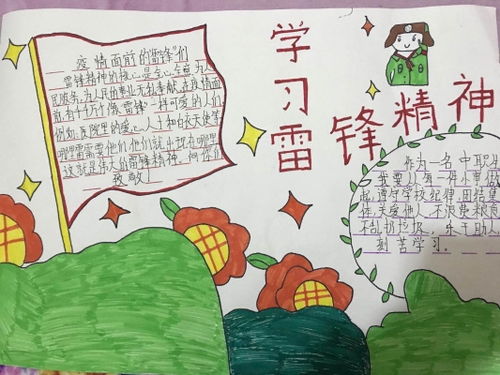 学习雷锋精神
疫情面前的“雷锋”们
雷锋精神的核心是全心全意为人
民服务,为人民的事业无私奉献,在疫情面
前,有千千万万像“雷锋”一样可爱的人们,
例如:医院里的爱心人士和白衣天使等
哪里需要他们他们就出现在哪里
这就是伟大的雷锋精神,向你们
致敬!
作为一名中职
我要从每一件小事做
起,遵守学校纪律,团结集
体,关爱他人,不浪费粮食
不乱扔垃圾,乐于助人
刻苦学习.